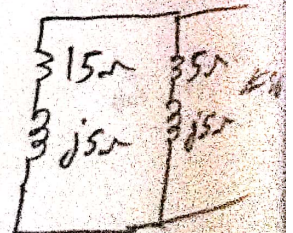 15Ω 5Ω
j5Ω j5Ω